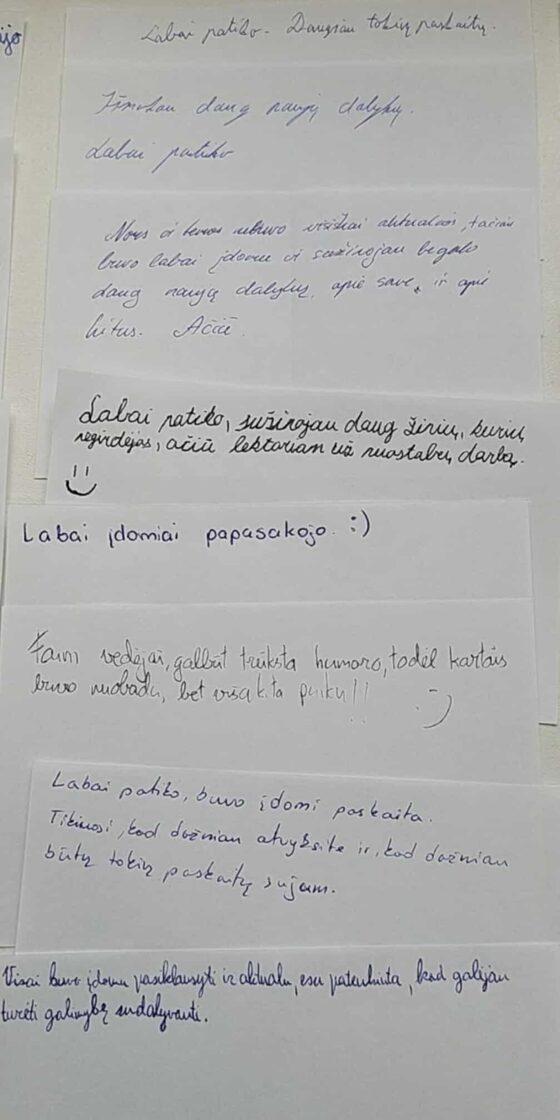 ijo
Labai patiko. Daugiau tokių paskaitų.
Išmokau daug naujų dalykų.
Labai patiko
Nors ši temos nebuvo visiškai aktualios, tačiau
buvo labai įdomu ir sužinojau begalo
daug naujų dalykų, apie save, ir apie
kitus. Ačiū.
Labai patiko, sužinojau daug žinių, kurių
negirdėjas, ačiū lektoriam už nuostabų darbą.
Labai įdomiai papasakojo. :)
vedėjai, galbūt trūksta humoro, todėl kartais
buvo nuobodu, bet visa kita puiku!! :)
Labai patiko, buvo įdomi paskaita.
Tikiuosi, kad dažniau atvyksite ir, kad dažniau
būtų tokių paskaitų sujam.
Visai buvo įdomu pasiklausyti ir aktualu, esu patenkinta, kad galėjau
turėti galimybę sudalyvauti.